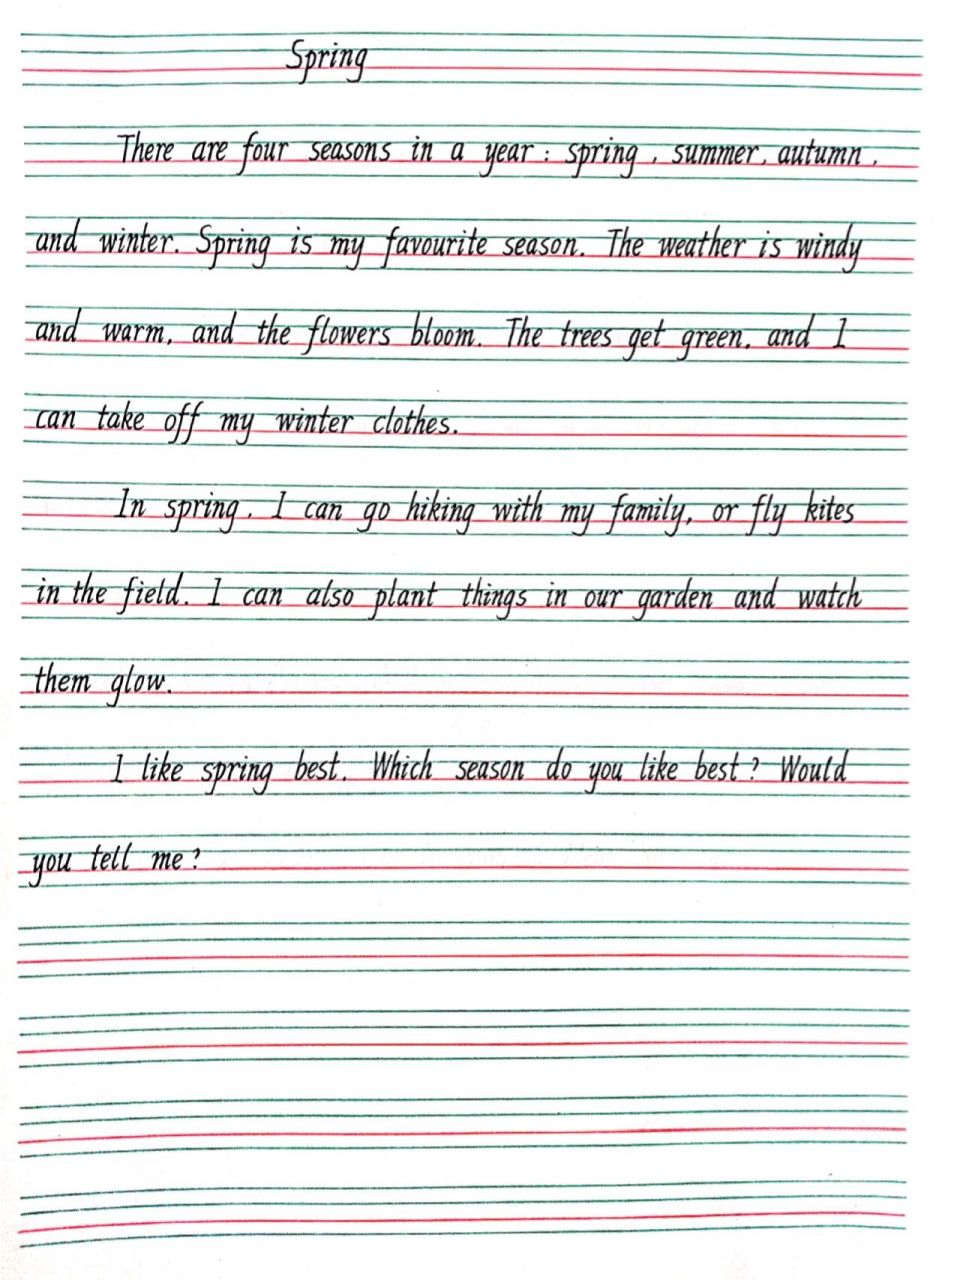 Spring
There are four seasons in a year: spring, summer, autumn,
and winter. Spring is my favourite season. The weather is windy
and warm, and the flowers bloom. The trees get green, and I
can take off my winter clothes.
In spring, I can go hiking with my family, or fly kites
in the field. I can also plant things in our garden and watch
them glow.
I like spring best. Which season do you like best? Would
you tell me?